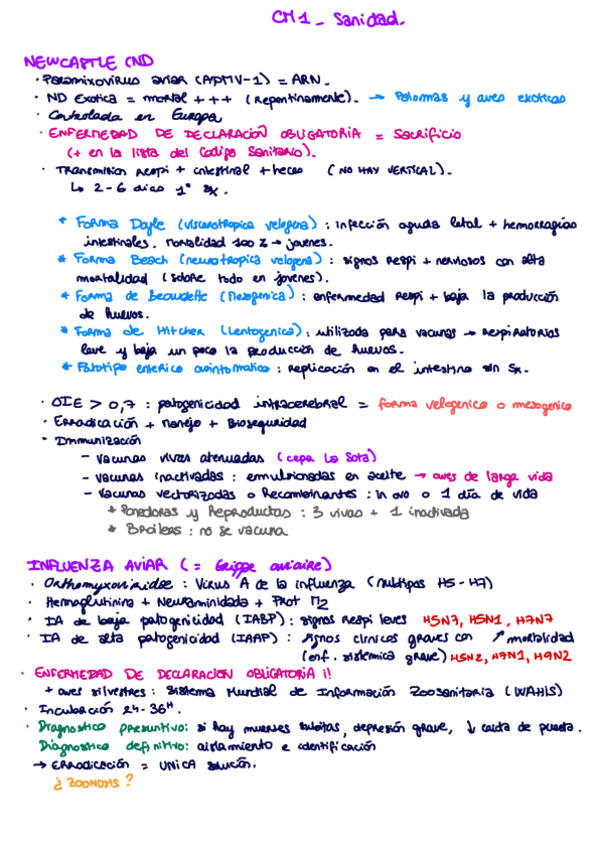 CM1 - Sanidad.
NEWCASTLE (ND
· Paramixovirus aviar (APMV-1) = ARN.
· ND Exotica = mortal +++ (repentinamente). → Palomas y aves exoticas
· Controlada en Europa
· ENFERMEDAD DE DECLARACION OBLIGATORIA = Sacrificio
(+ en la lista del Codigo Sanitario).
· Transmision respi + intestinal + heces (NO HAY VERTICAL).
↳ 2-6 dias 1° sx.
* Forma Doyle (viscerotropica velogena) : infección aguda letal + hemorragias
intestinales. Mortalidad 100% → jovenes.
* Forma Beach (neurotropica velogena) : signos respi + nerviosos con alta
mortalidad (sobre todo en jovenes).
* Forma de Beaudette (Mesogenica) : enfermedad respi + baja la producción
de huevos.
* Forma de Hitcher (Lentogenica) : utilizada para vacunas → respiratorios
leve y baja un poco la producción de huevos.
* Patotipo enterico asintomatico : replicación en el intestino sin sx.
· OIE > 0,7 : patogenicidad intracerebral = forma velogenica o mesogenica
· Erradicación + manejo + Bioseguridad
· Immunización
- vacunas vivas atenuadas (cepa La Sota)
- vacunas inactivadas : emulsionadas en aceite → aves de larga vida
- vacunas vectorizadas o Recombinantes : in ovo o 1 día de vida
* Ponedoras y Reproductas : 3 vivas + 1 inactivada
* Broilers : no se vacuna
INFLUENZA AVIAR (= Grippe aviaire)
· Orthomyxoviridae : Virus A de la influenza (multipos H5-H7)
· Hemaglutinina + Neuraminidada + Prot M2
· IA de baja patogenicidad (IABP) : signos respi leves H5N7, H5N1, H7N7
· IA de alta patogenicidad (IAAP) : signos clinicos graves con ↗ mortalidad
(enf. sistemica grave) H5N2, H7N1, H9N2
· ENFERMEDAD DE DECLARACION OBLIGATORIA !!
+ aves silvestres : Sistema Mundial de Información Zoosanitaria (WAHIS)
· Incubación 24-36H.
· Diagnostico presuntivo: si hay muertes subitas, depresión grave, ↓ caida de puesta.
Diagnostico definitivo: aislamiento e identificación
→ Erradicación = UNICA solución.
¿ ZOONOSIS ?